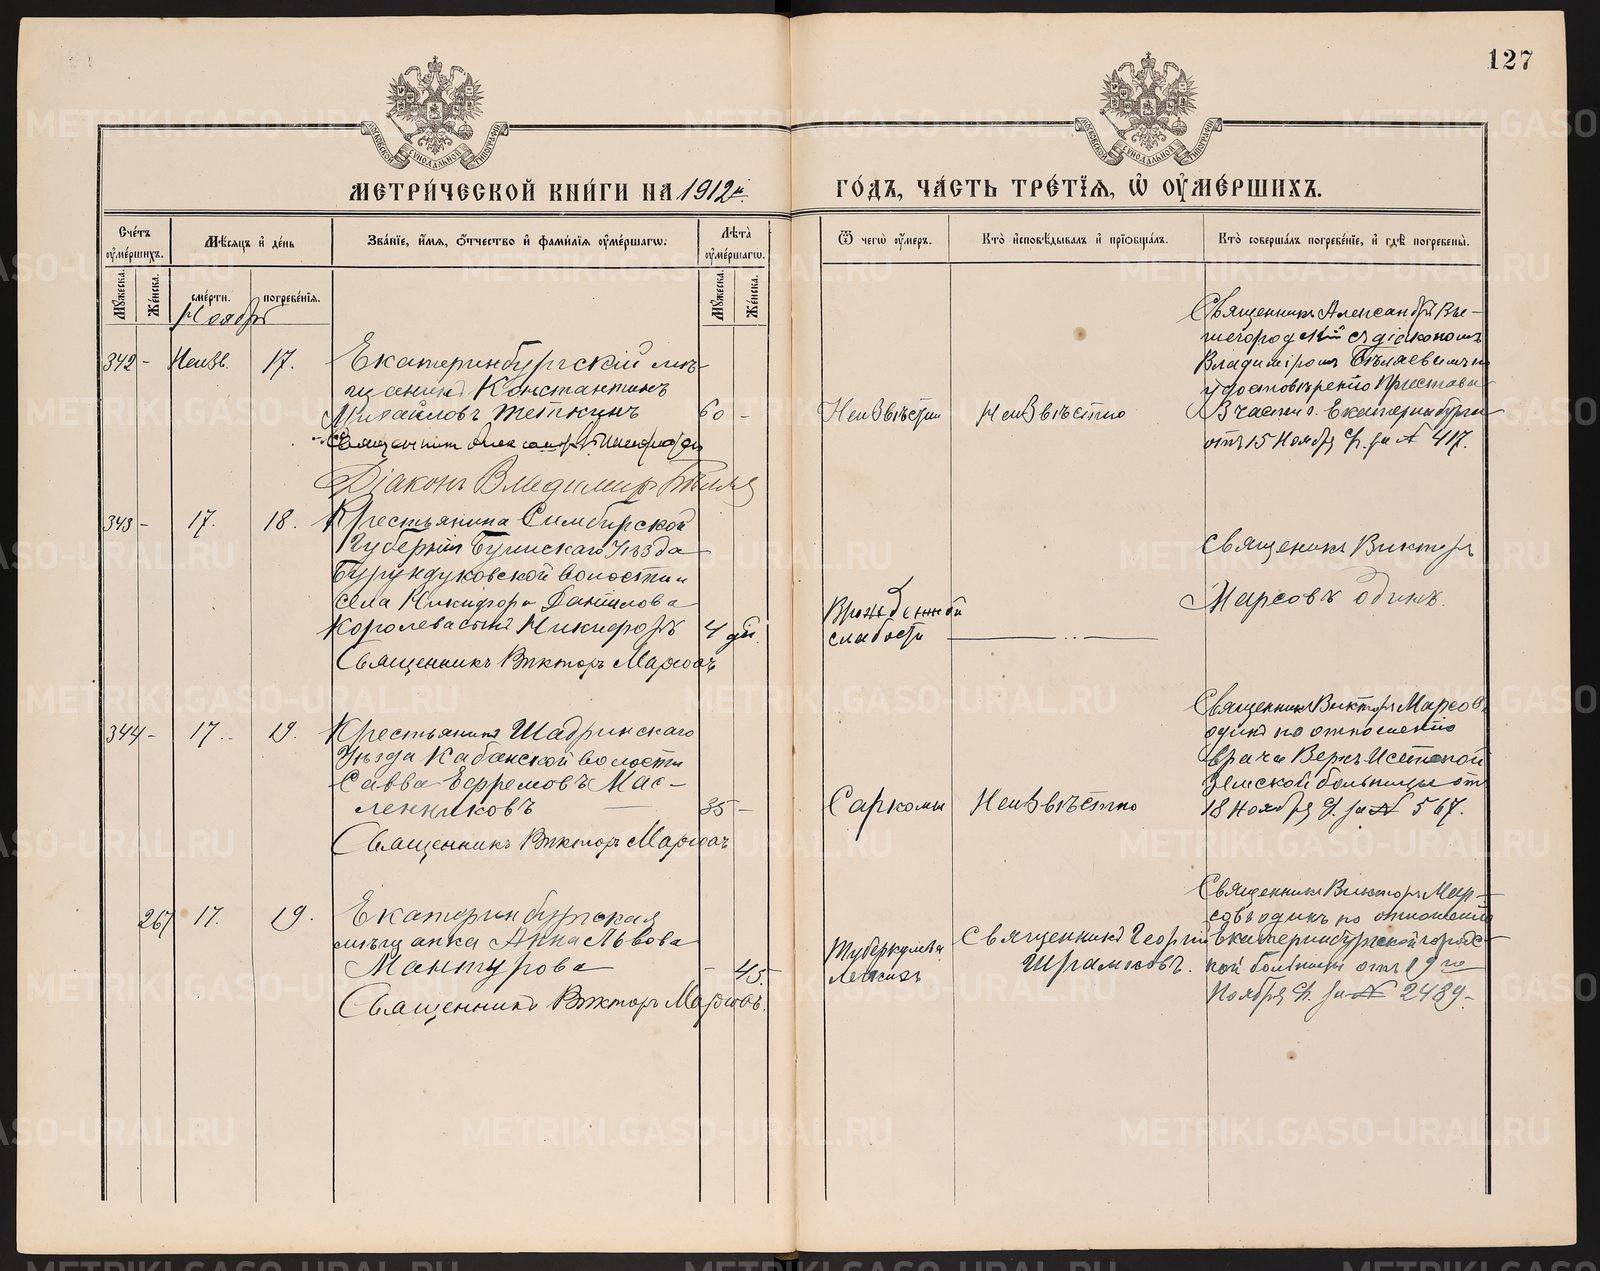 127
МОСКОВСКОЙ СѴНОДАЛЬНОЙ ТИПОГРАФІИ
МОСКОВСКОЙ СѴНОДАЛЬНОЙ ТИПОГРАФІИ
МЕТРИ́ЧЕСКОЙ КНИ́ГИ НА 1912й ГО́ДЪ, ЧА́СТЬ ТРЕ́ТІѦ, Ѿ ОУ҆МЕ́РШИХЪ.
Сче́тъ оу҆ме́ршихъ.
Мѣ́сѧцъ и҆ де́нь
Зва́нїе, и҆́мѧ, ѻ҆́тчество и҆ фами́лїѧ оу҆ме́ршагѡ.
Лѣ́та оу҆ме́ршагѡ.
Ѿ чегѡ̀ оу҆́меръ.
Кто̀ и҆сповѣ́дывалъ и҆ прїѻбща́лъ.
Кто̀ соверша́лъ погребе́нїе, и҆ гдѣ̀ погребены̀.
Мꙋ́жеска. Же́нска.
сме́рти. погребе́нїѧ.
Мꙋ́жеска. Же́нска.
Ноябрь
342 - Неизв. 17.
Екатеринбургскій мѣ-
щанинъ Константинъ
Михайловъ 60 -
Священникъ
Діаконъ Владимиръ
Неизвѣстно
Неизвѣстно
Священникъ Александръ Вы-
шегородскій съ діакономъ
Владиміромъ Бѣляевымъ по
удостовѣренію Пристава
части г. Екатеринбурга
отъ 15 Ноября с/г. за № 417.
343 - 17. 18.
Крестьянина Симбирской
Губерніи Буинскаго Уѣзда
Бурундуковской волости и
села Никифора Данилова
Королева сынъ Никифоръ 4 дн.
Священникъ Викторъ Марсовъ
Врожденной
слабости
Священникъ Викторъ
Марсовъ одинъ.
344 - 17. 19.
Крестьянинъ Шадринскаго
Уѣзда Кабанской волости
Савва Ефремовъ Мас-
ленниковъ 35 -
Священникъ Викторъ Марсовъ
Саркомы
Неизвѣстно
Священникъ Викторъ Марсовъ
одинъ по отношенію
врача Верхъ Исетской
Земской больницы отъ
18 Ноября с/г. за № 567.
267 17. 19.
Екатеринбургская
мѣщанка Анна Львова
Мантурова - 45.
Священникъ Викторъ Марсовъ.
Туберкулеза
Легкихъ
Священникъ Георгій
Шрамковъ.
Священникъ Викторъ Мар-
совъ одинъ по отношенію
Екатеринбургской городс-
кой больницы отъ 19го
Ноября с/г. за № 2489.-
METRIKI.GASO-URAL.RU